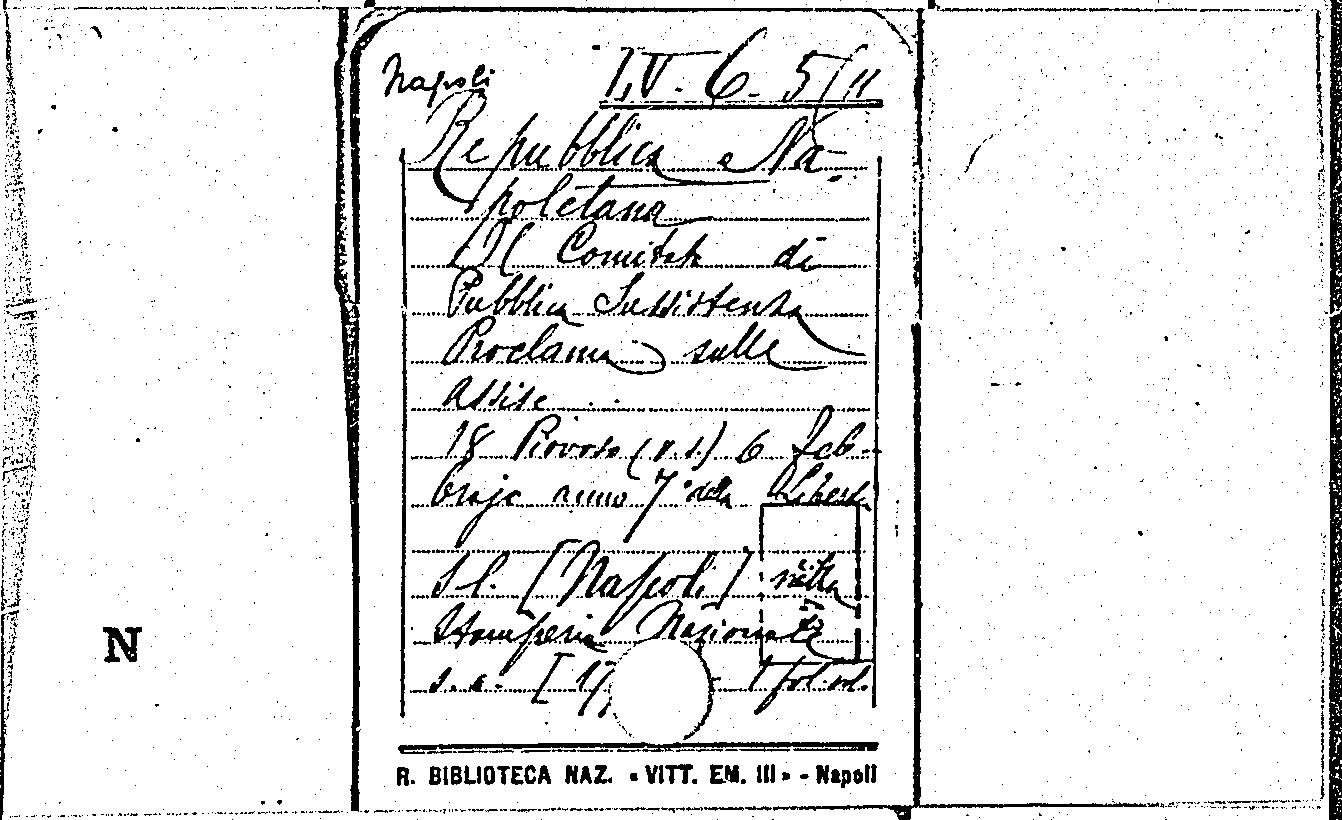 Napoli I,V. 6. 5/11
Repubblica Na-
poletana
Il Comitato di
Pubblica Sussistenza
Proclama sulle
assise
18 Piovoso (v.s.) 6 feb-
braje anno 7° della Libertà
S.l. [Napoli] nella
Stamperia Nazionale
s.a. [17 1 fol. vol.
R. BIBLIOTECA NAZ. « VITT. EM. III » - Napoli
N